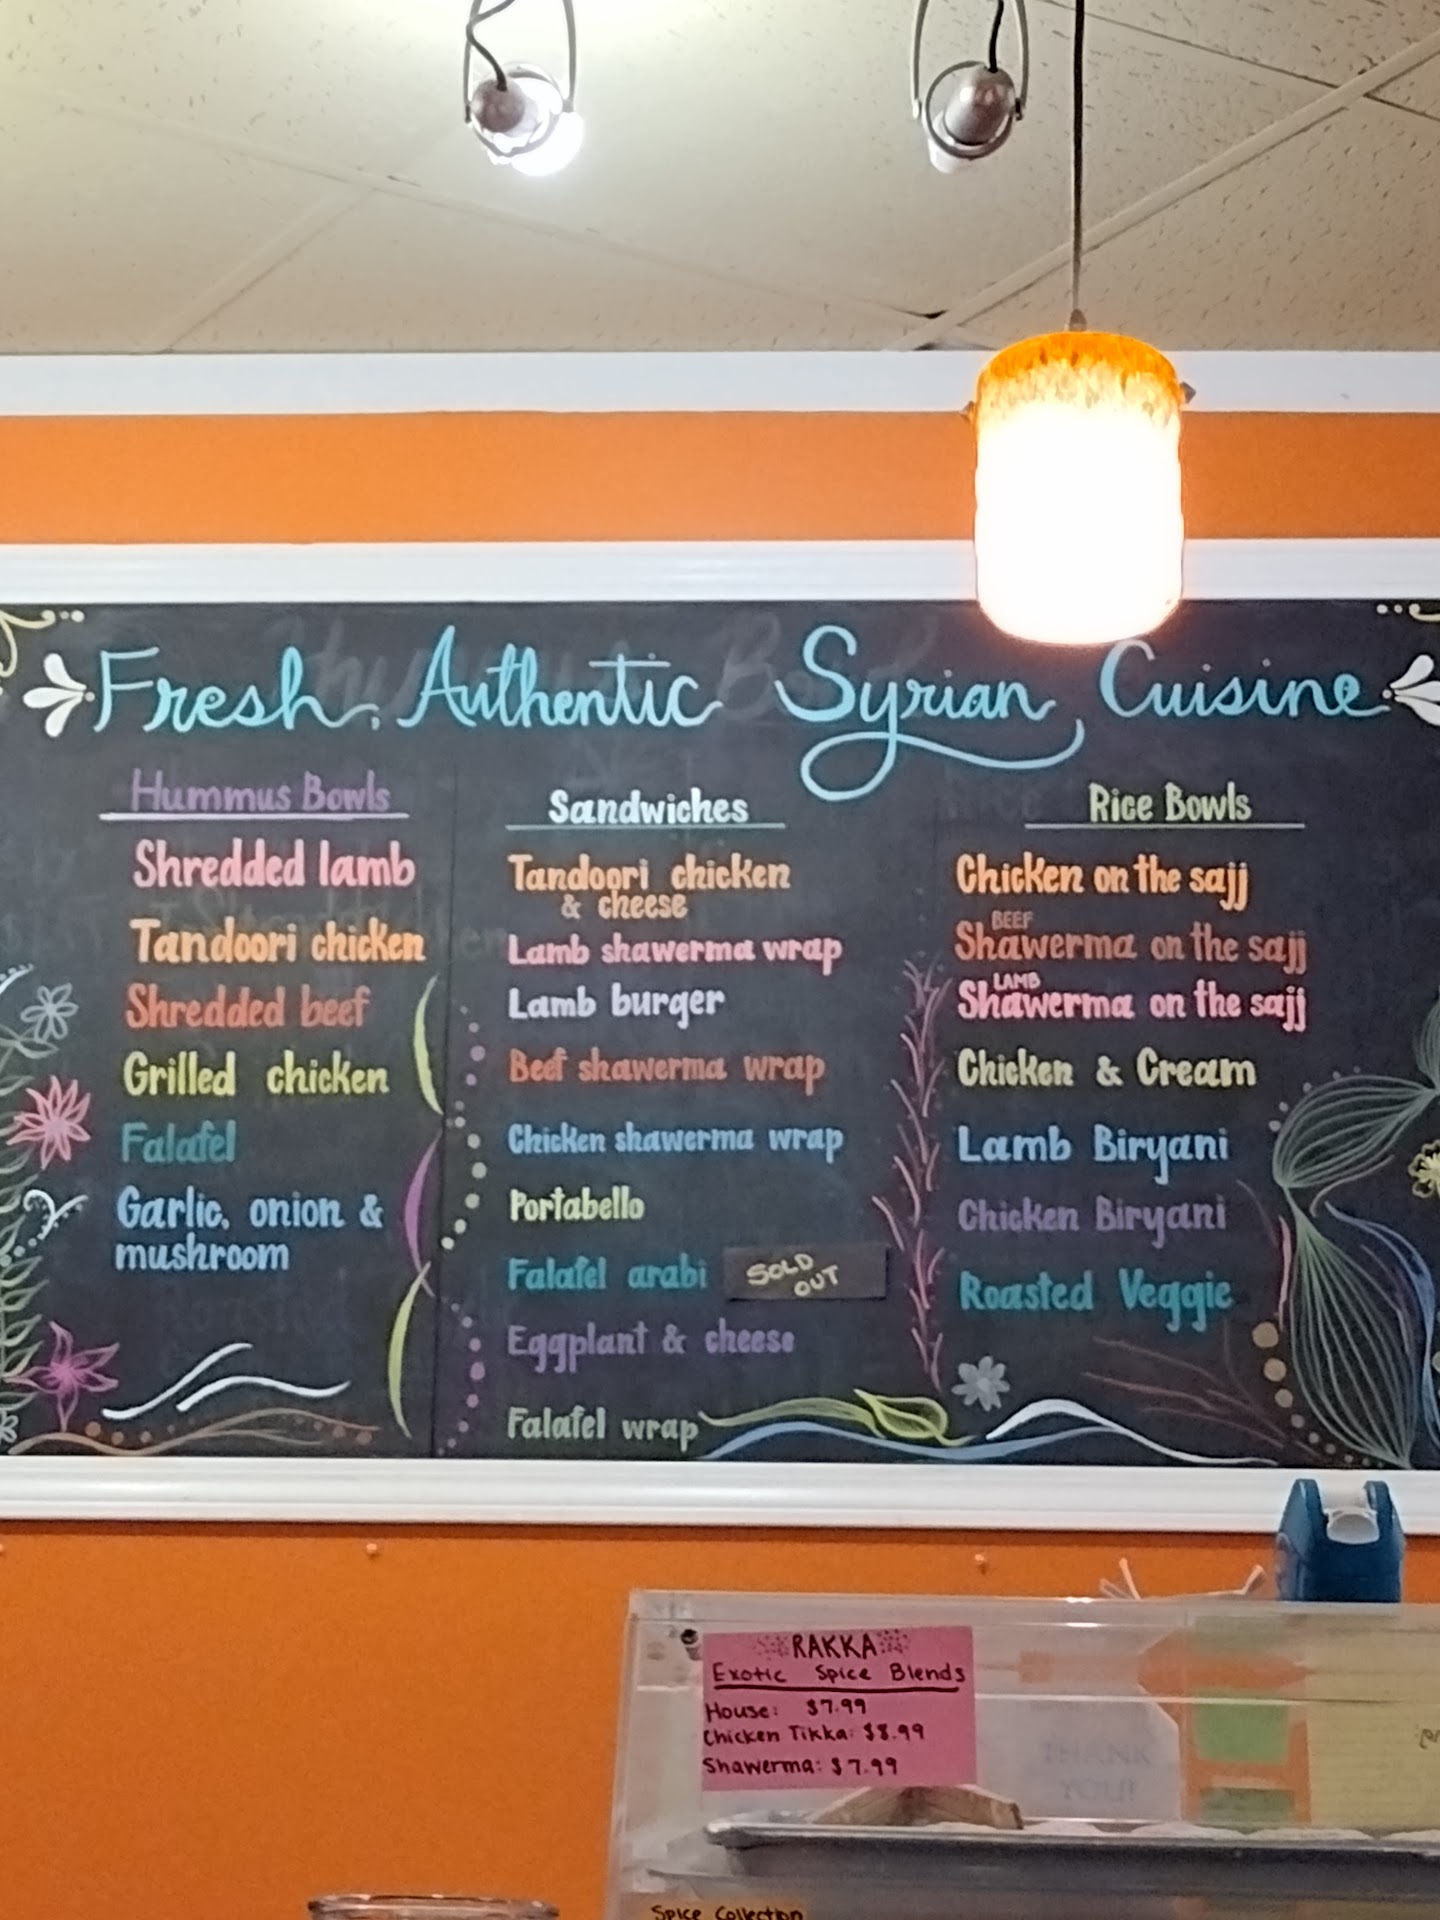 Fresh, Authentic Syrian Cuisine
Hummus Bowls
Shredded lamb
Tandoori chicken
Shredded beef
Grilled chicken
Falafel
Garlic, onion &
mushroom
Sandwiches
Tandoori chicken
& cheese
Lamb shawerma wrap
Lamb burger
Beef shawerma wrap
Chicken shawerma wrap
Portabello
Falafel arabi
SOLD
OUT
Eggplant & cheese
Falafel wrap
Rice Bowls
Chicken on the sajj
BEEF
Shawerma on the sajj
LAMB
Shawerma on the sajj
Chicken & Cream
Lamb Biryani
Chicken Biryani
Roasted Veggie
RAKKA
Exotic Spice Blends
House: $7.99
Chicken Tikka: $8.99
Shawerma: $7.99
THANK
YOU!
Spice Collection